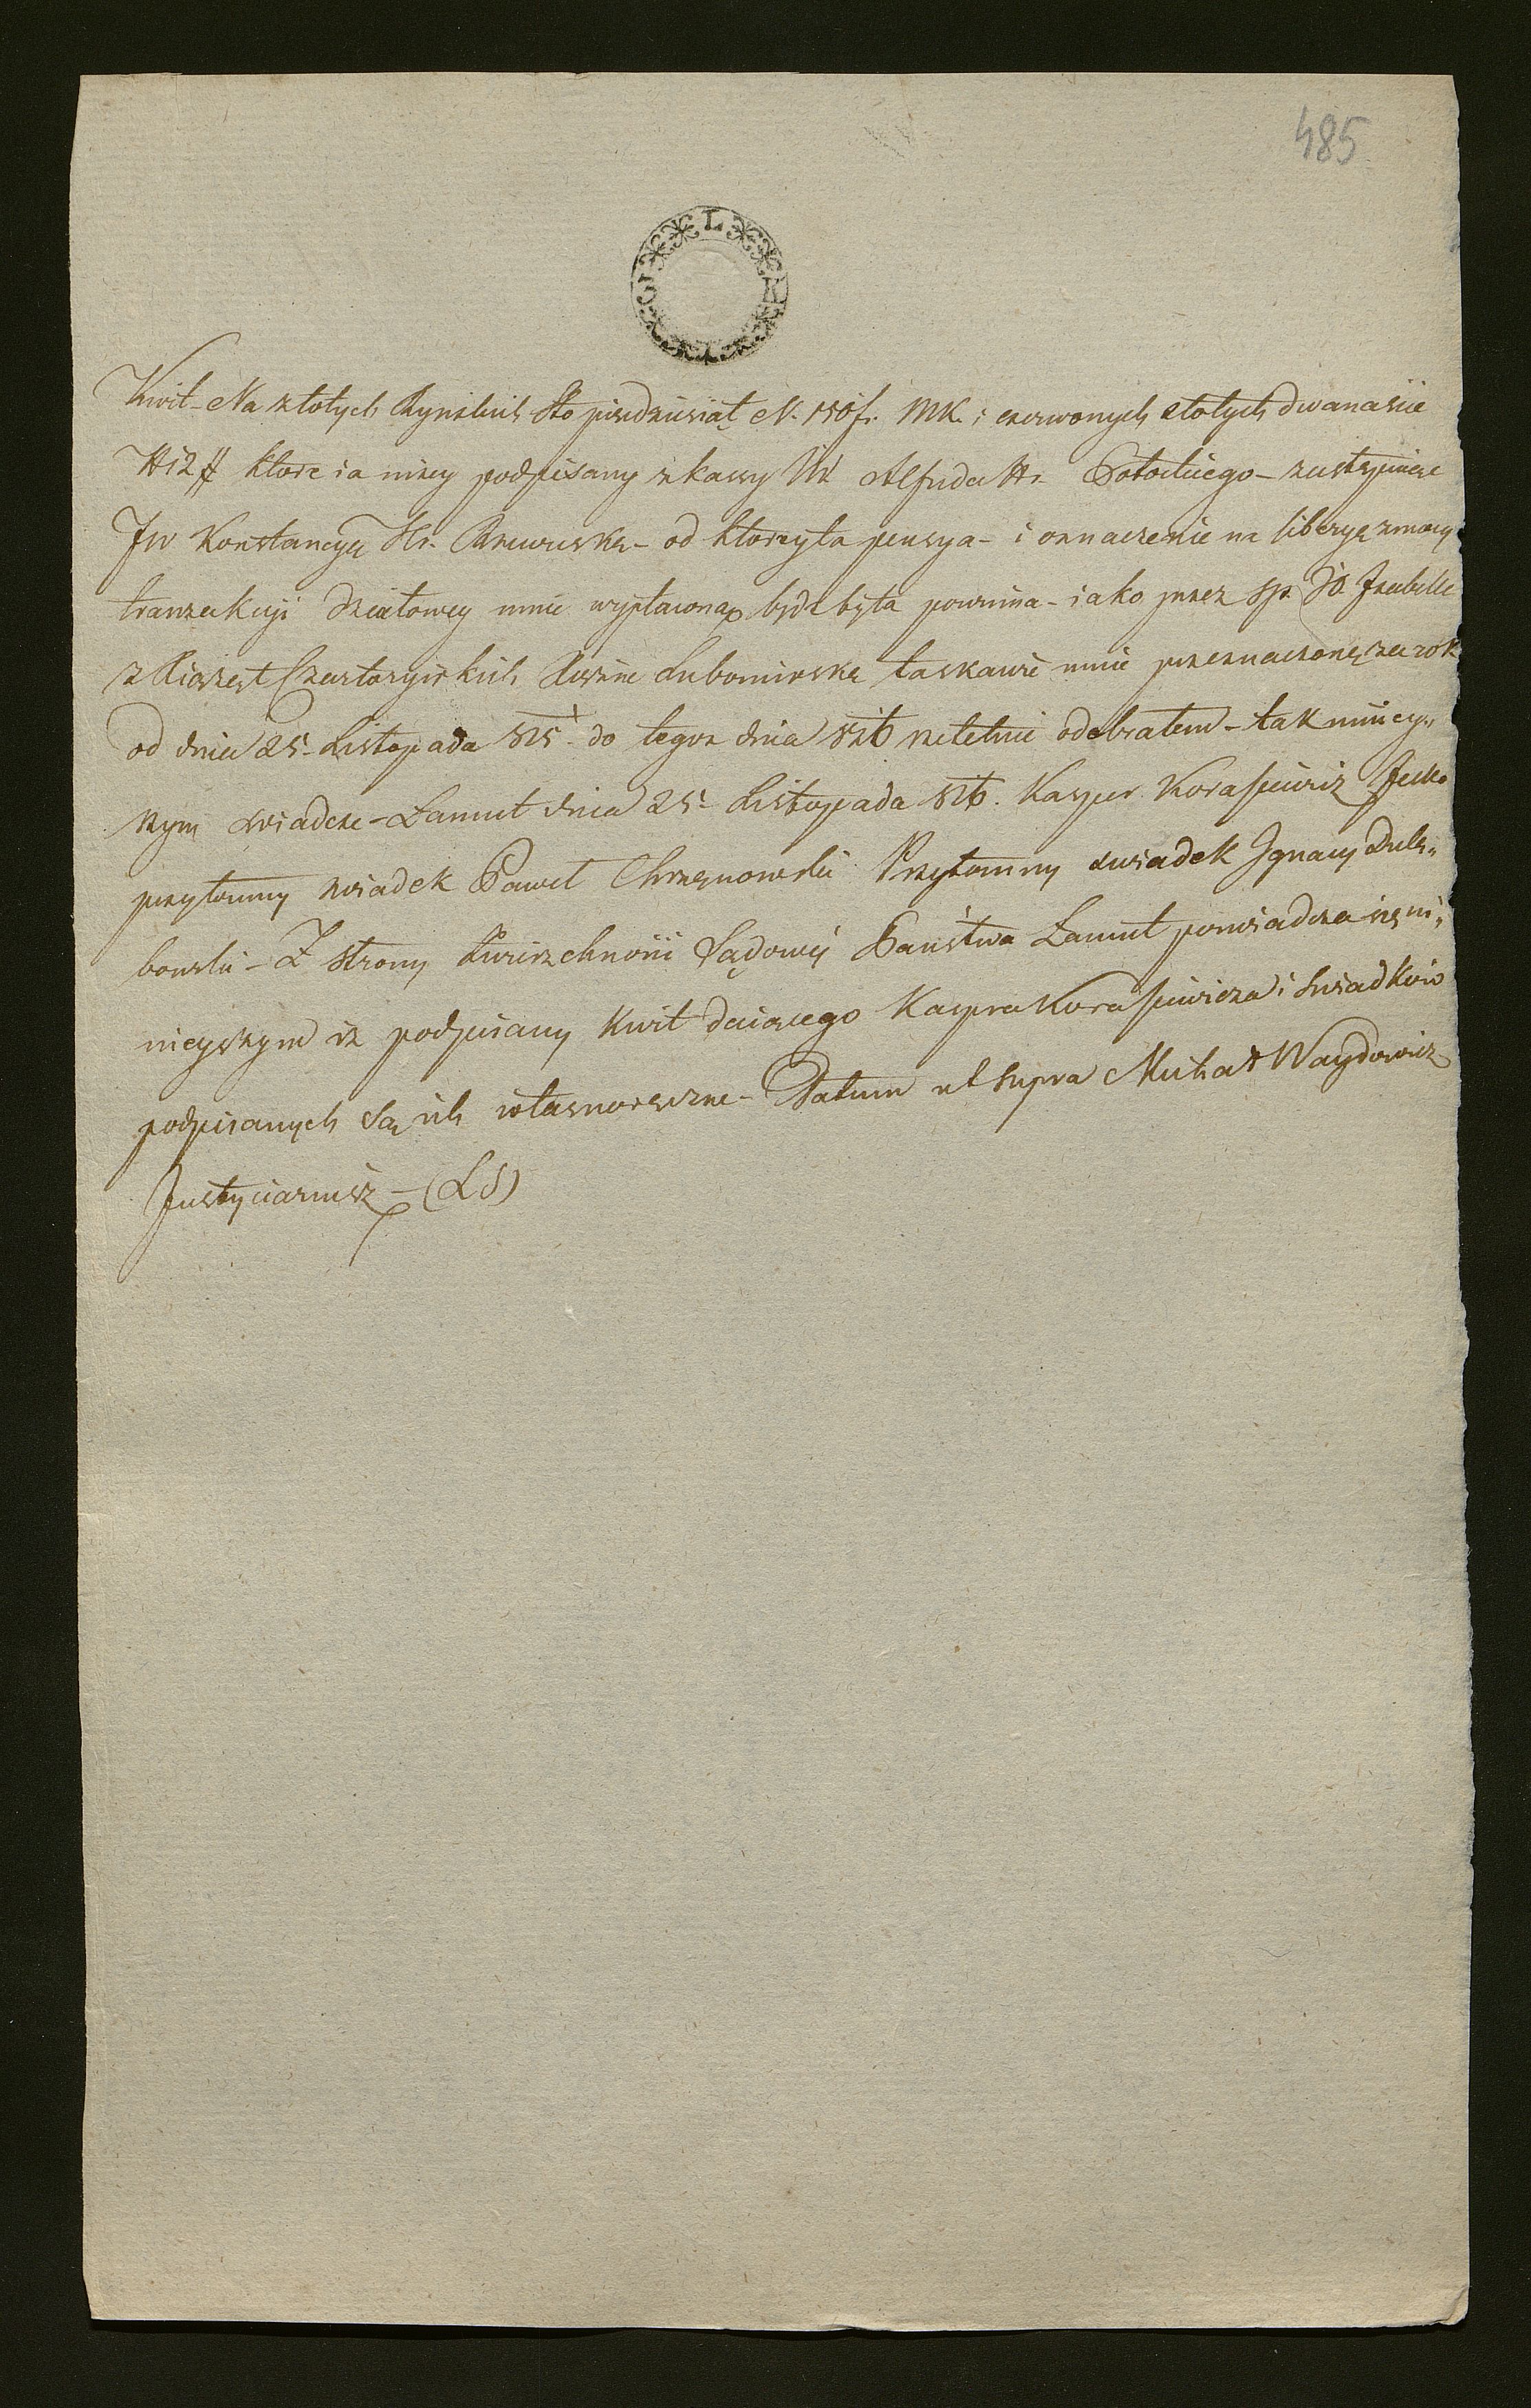 485
Kwit – Na złotych Rynskich Sto piedziesiąt N. 150 f. MK. i czerwonych złotych dwanascie
N 12 # ktore ia niżey podpisany z kassy JW Alfreda Hr. Potockiego – zastępuiąc
JW Konstancyą Hr. Rzewuską – od ktorey ta pensya – i oznaczenie na liberyą z mocy
tranzakcyi działowey mnie wypłacona bydz była powinna – iako przez sp. JO. Izabellę
z Xiążąt Czartoryiskich Xiężnę Lubomirską łaskawie mnie przeznaczoną za rok
od dnia 25. Listopada 825. do tegoż dnia 826 rzetelnie odebrałem – tak ninieyʺ
szym świadczę – Lancut dnia 25. Listopada 826. Kasper Korasiewicz
przytomny świadek Paweł Chrzanowski Przytomny swiadek Ignacy Dulęʺ
bowski – Z strony Zwierzchności Sądowey Państwa Lancut poswiadcza się niʺ
nieyszym iz podpisany Kwit daiącego Kaspra Korasiewicza i Swiadkow
podpisanych są ich własnoręczne – Datum ut Supra Michał Waydowicz
Justyciariusz – (LS)